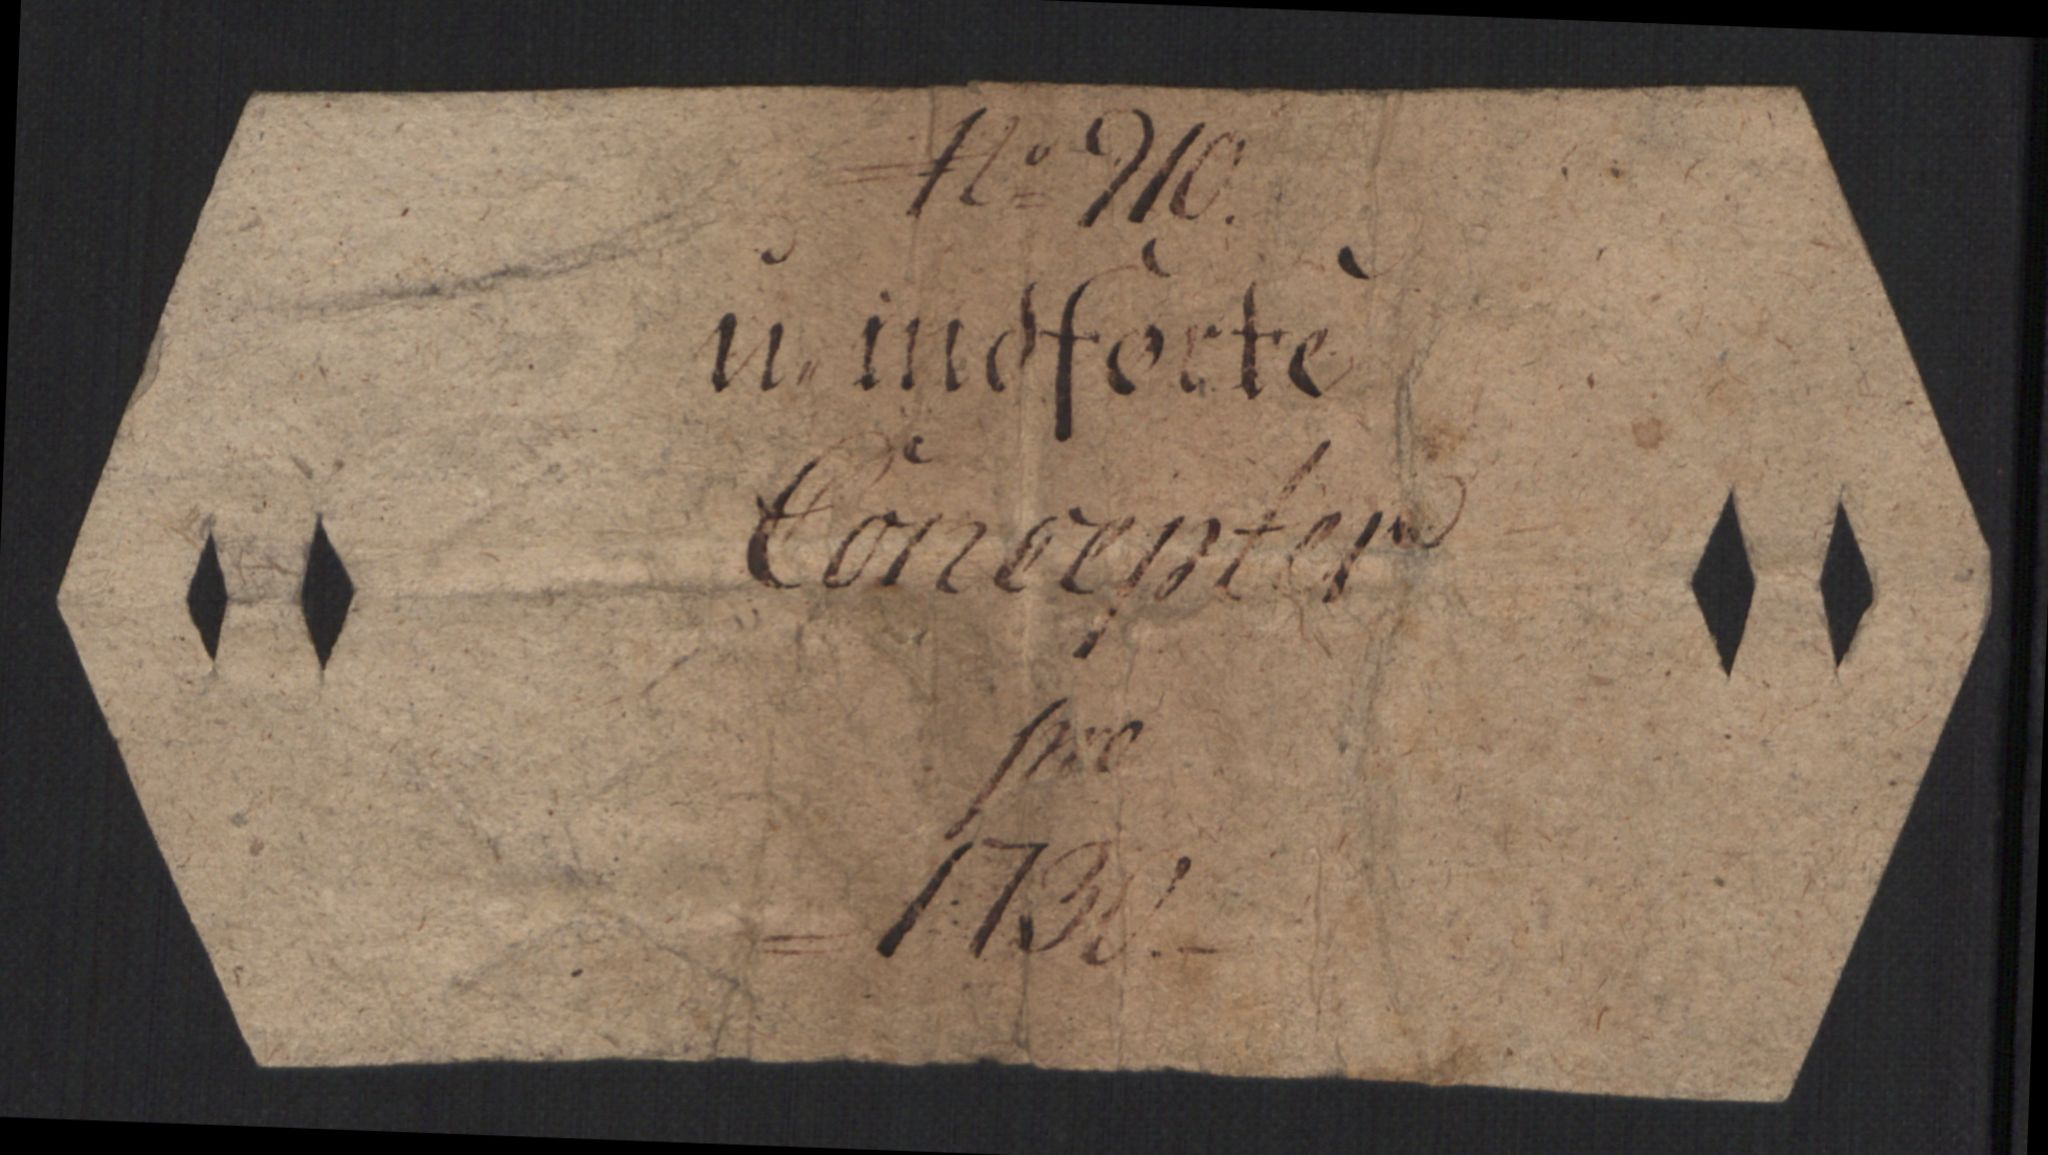 No 910.
u-indførte
Concepter
pro
1738.